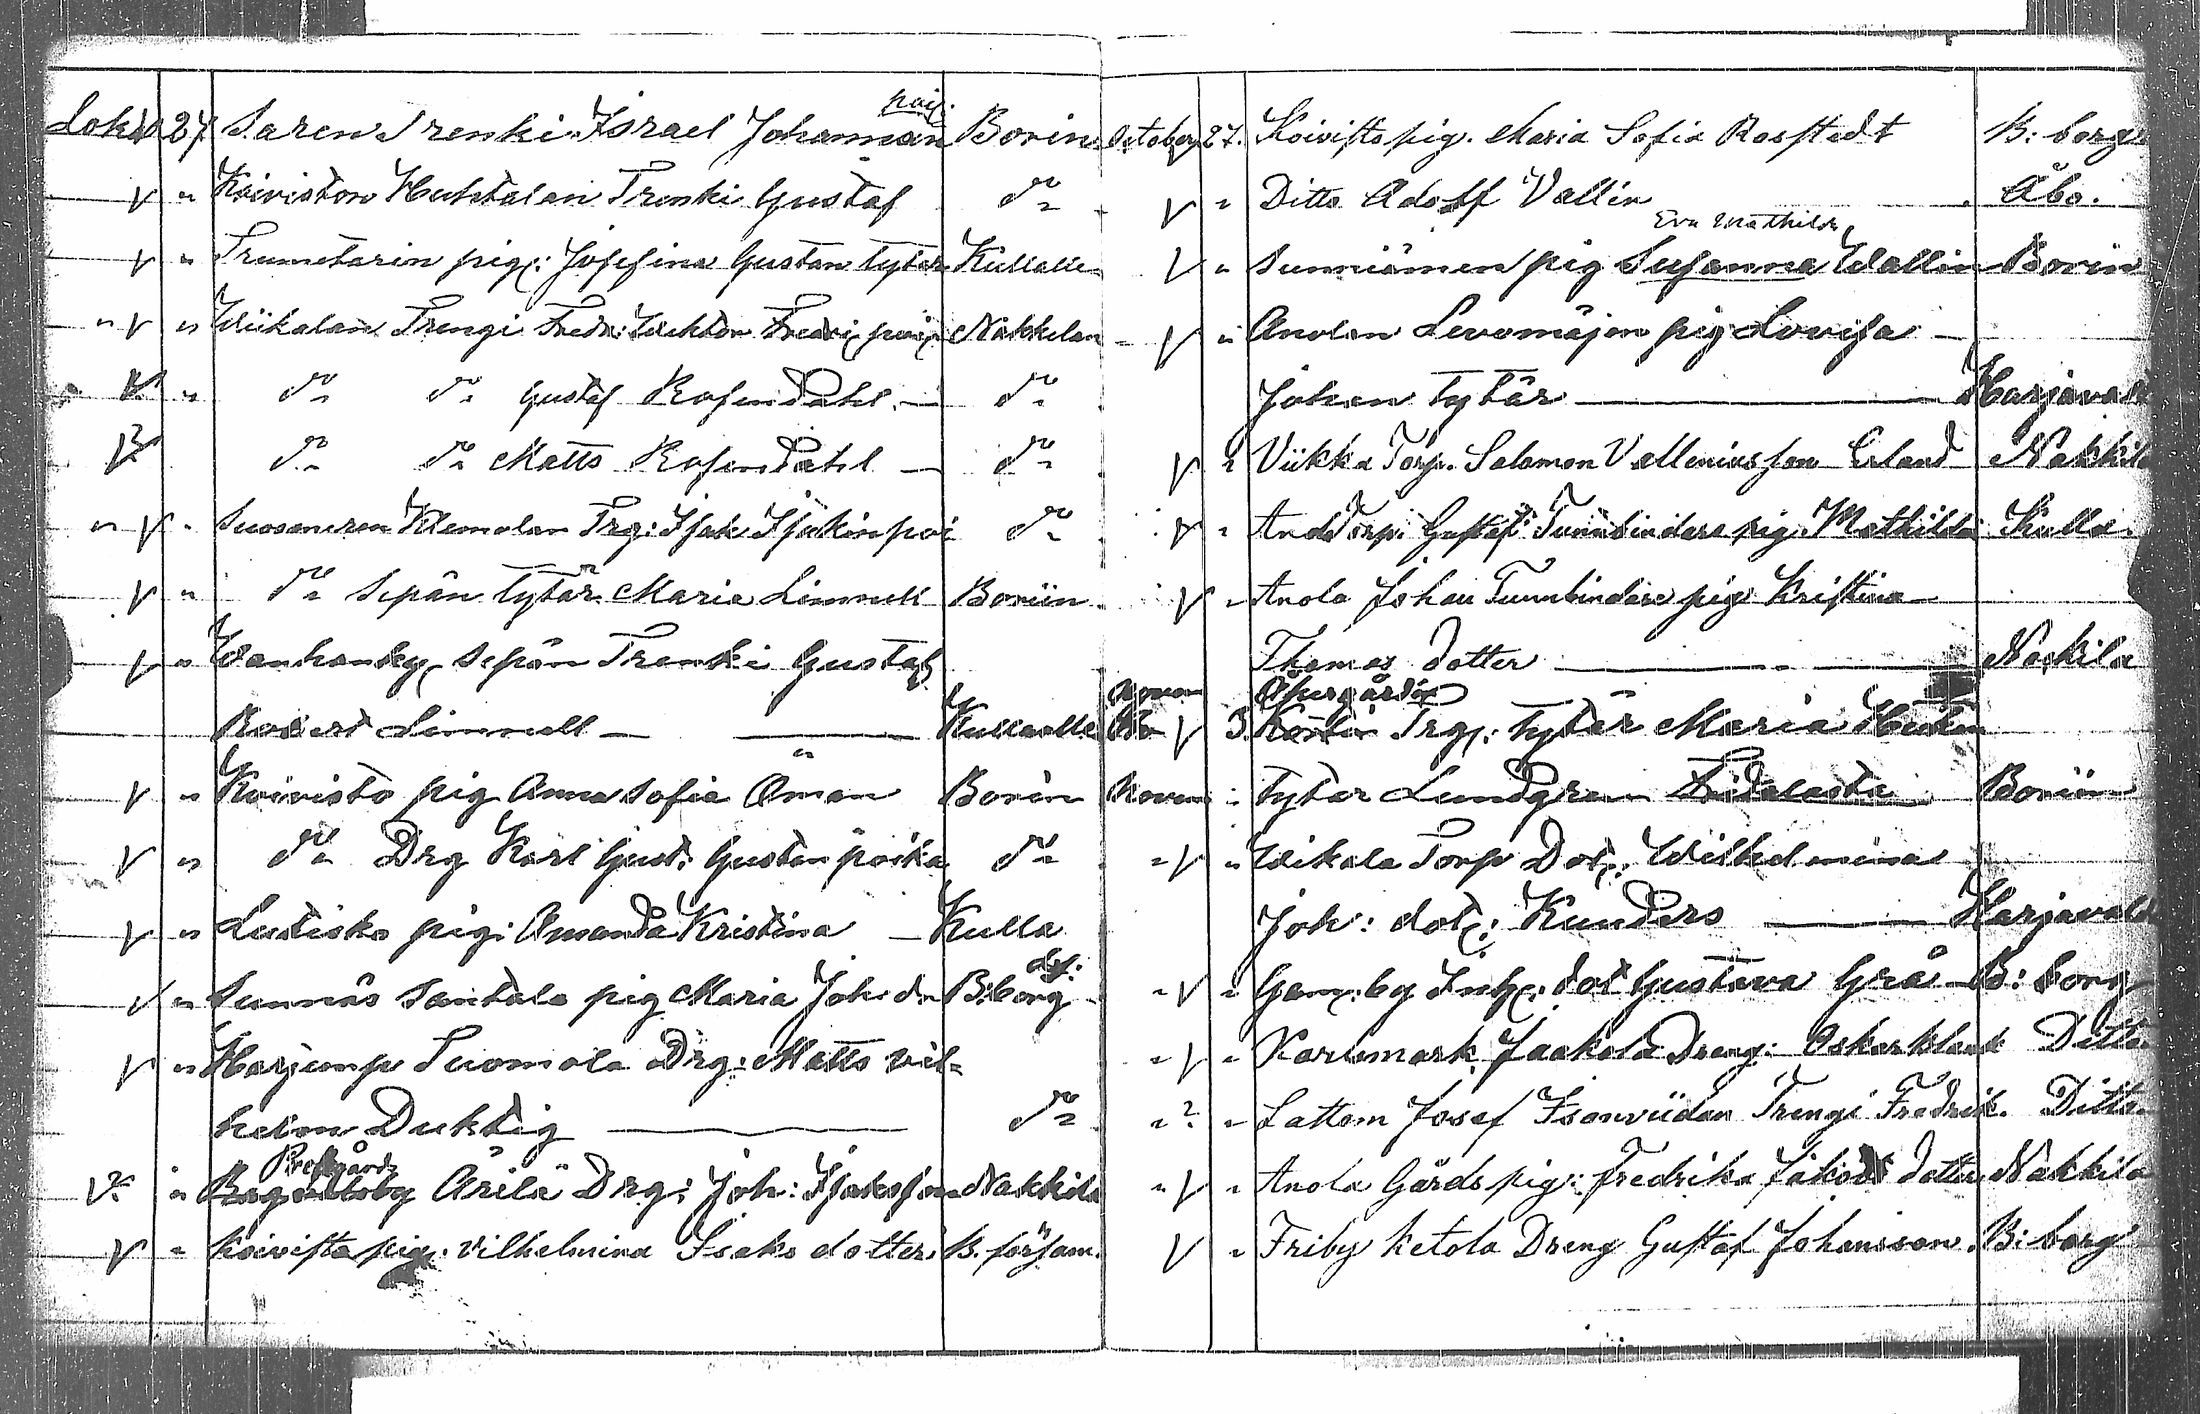 poig.
Lokak 27 Saren Trenki Israel Johannan Borin
V " Koiviston Huhtalan Trenki Gustaf do
V " Trumetarin pig: Josefina Gustan tytär Kullalle
" V " Wiikalan Trengi Fredr: Wiktor Fredri poig Nakkilan
V " do do Gustaf Rosendahl — do
V do do Matts Rosendahl — do
" V " Suosmeren Klemolan Trg: Isak Isakin poi do
V " do Sepän tytär Maria Limnell Boriin
V " Wanhankyl Sepän Trenki Gustaf
Robert Limnell — Kullaalle
V " Koivisto pig Anna Sofia Öman Borin
V " do Drg Karl Gust. Gustan poika do
V " Lutisko pig: Amanda Kristina — Kulla
V " Sunnäs Santala pig Maria Joh. dr B:borg
V " Harjunp Tuomola Drg: Matts Vil=
helm Duktig — do
Prestgårds
V " Ärilä Drg: Joh: Isaksson Nakkila
V " Koivisto pig. Vilhelmina Isaks dotter B. församl.
October 27. Koivisto pig. Maria Sofia Rosstedt B:borg
V " Ditto Adolf Vallin Åbo.
Eva Mathilda
V " Sunniämen pig Susanna Wallin Borin
V " Anolan Levomäjen pig Lovisa —
Johan tytär — Harjavalt
V " Viikka Torp. Salomon Vallenius son Erland Nakkila
V " And Torp. Gustaf Tunnbindare pig. Mathilda Kulla.
V " Anola Johan Tunnbindare pig Kristina —
Thomas dotter — Nakkila
V 3 Trg: tytär Maria
Novem " tytär Lundgren Boriin
" V " Wikala Torp Dot: Wilhelmina
Joh: dot: Kunders — Harjavalt
" V " Gam:by Inh: dot Gustava Grå B:borg
" V " Karlsmark Jaakola Dreng: Oskar Ditto
" ? " Lattom Josef Isonviidan Trengi Fredrik. Ditto
" V " Anola Gårds pig: Fredrika Jakobs dotter Nakkila
V " Friby Ketola Dreng Gustaf Johansson. B:borg